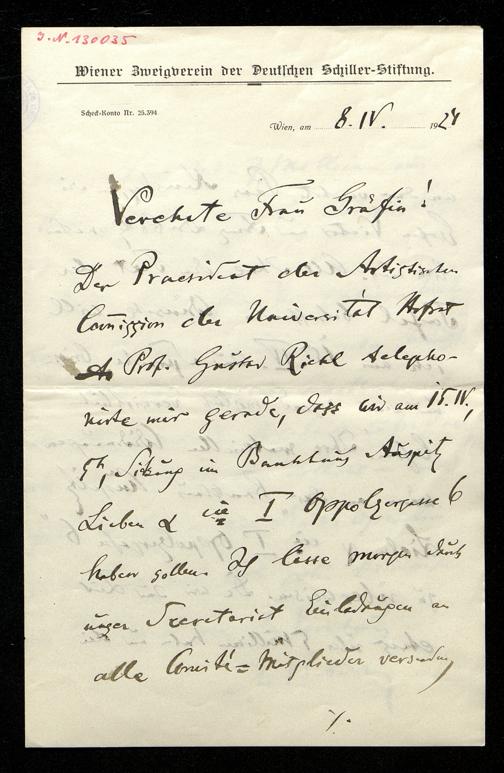 J.N. 130035
Wiener Zweigverein der Deutschen Schiller-Stiftung.
Scheck-Konto Nr. 25.394
Wien, am 8. IV. 1924
Verehrte Frau Gräfin!
Der Praesident der Artistischen
Commission der Universität Hofrat
Prof. Gustav Riehl telepho-
nirte mir gerade, dass wir am 15. IV,
5h, Sitzung im Bankhaus Auspitz
Lieben & cie I Oppolzergasse 6
haben sollen. Ich lasse morgen durch
unser Secretariat Einladungen an
alle Comité-Mitglieder versenden,
./.